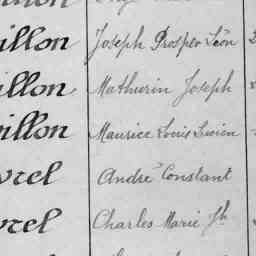 illon Joseph Prosper Léon
illon Mathurin Joseph
illon Maurice Louis Lucien
rel André Constant
rel Charles Marie Jh